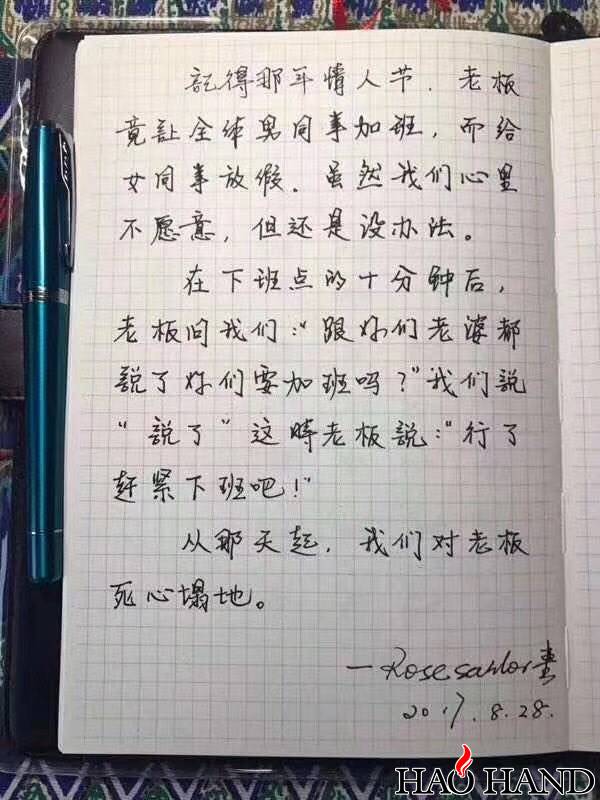 記得那年情人节，老板
竟讓全体男同事加班，而给
女同事放假。虽然我们心里
不愿意，但还是没办法。
在下班点的十分钟后，
老板问我们：“跟妳们老婆都
説了妳们要加班吗？”我们説
“説了”这時老板説：“行了
赶紧下班吧！”
从那天起，我们对老板
死心塌地。
—Rose
2017.8.28.
HAO HAND